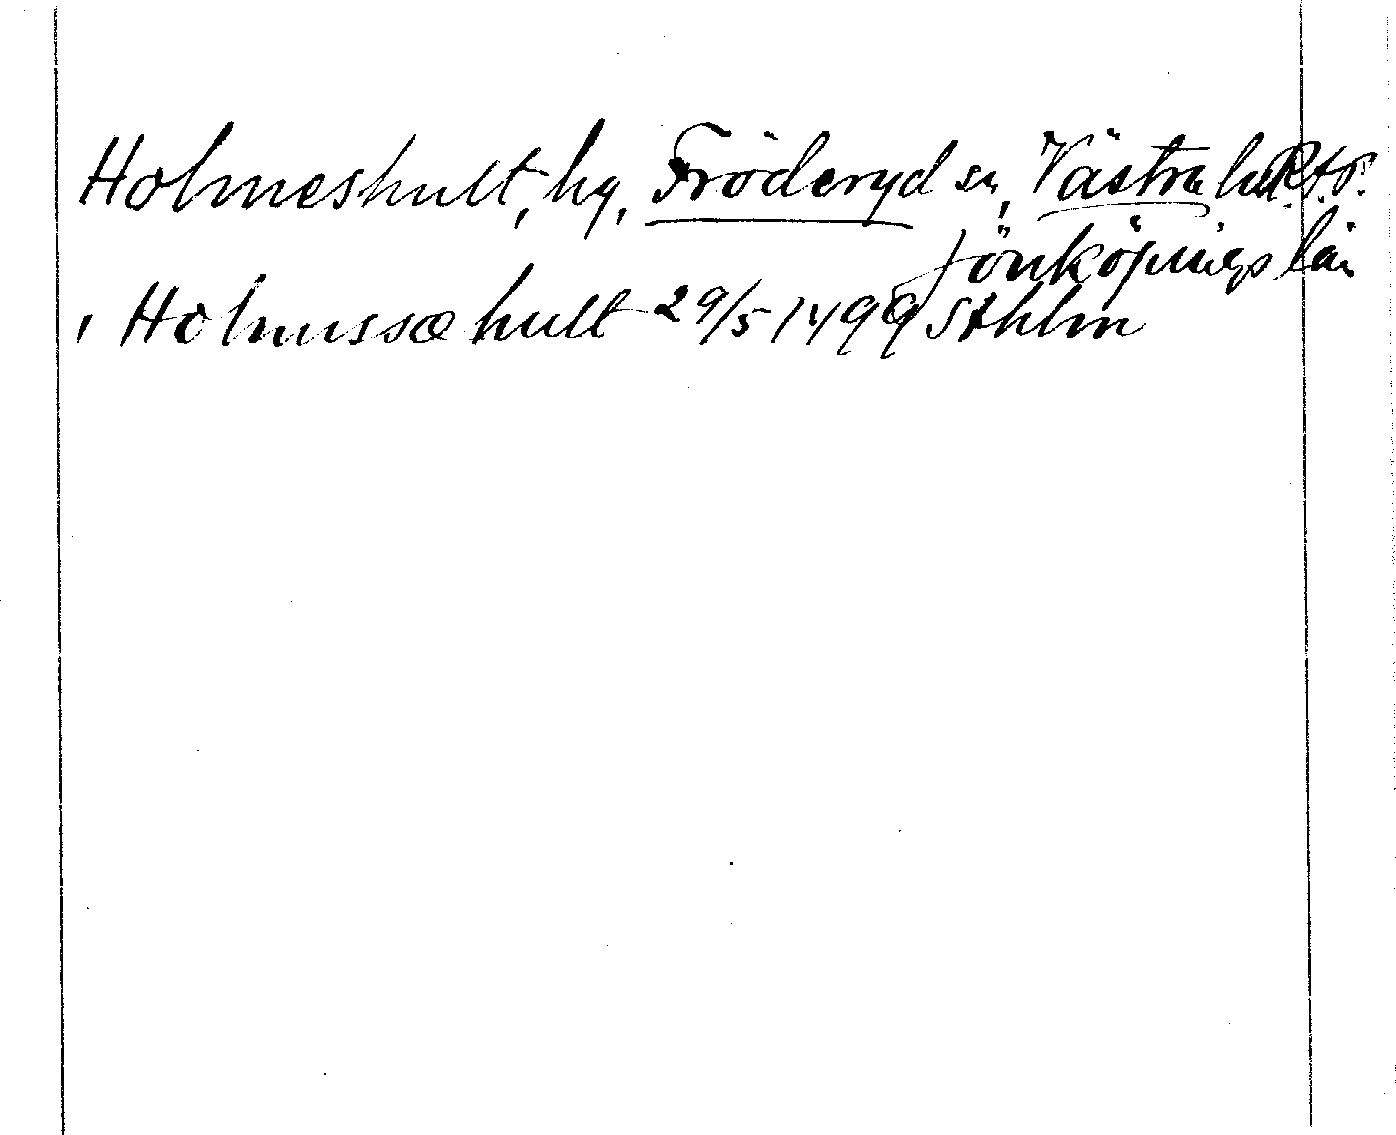 Holmeshult, by, Fröderyd sn, Västra hd R.A.P.
Jönköpings län
i Holmussæhult 29/5 1499 Sthlm